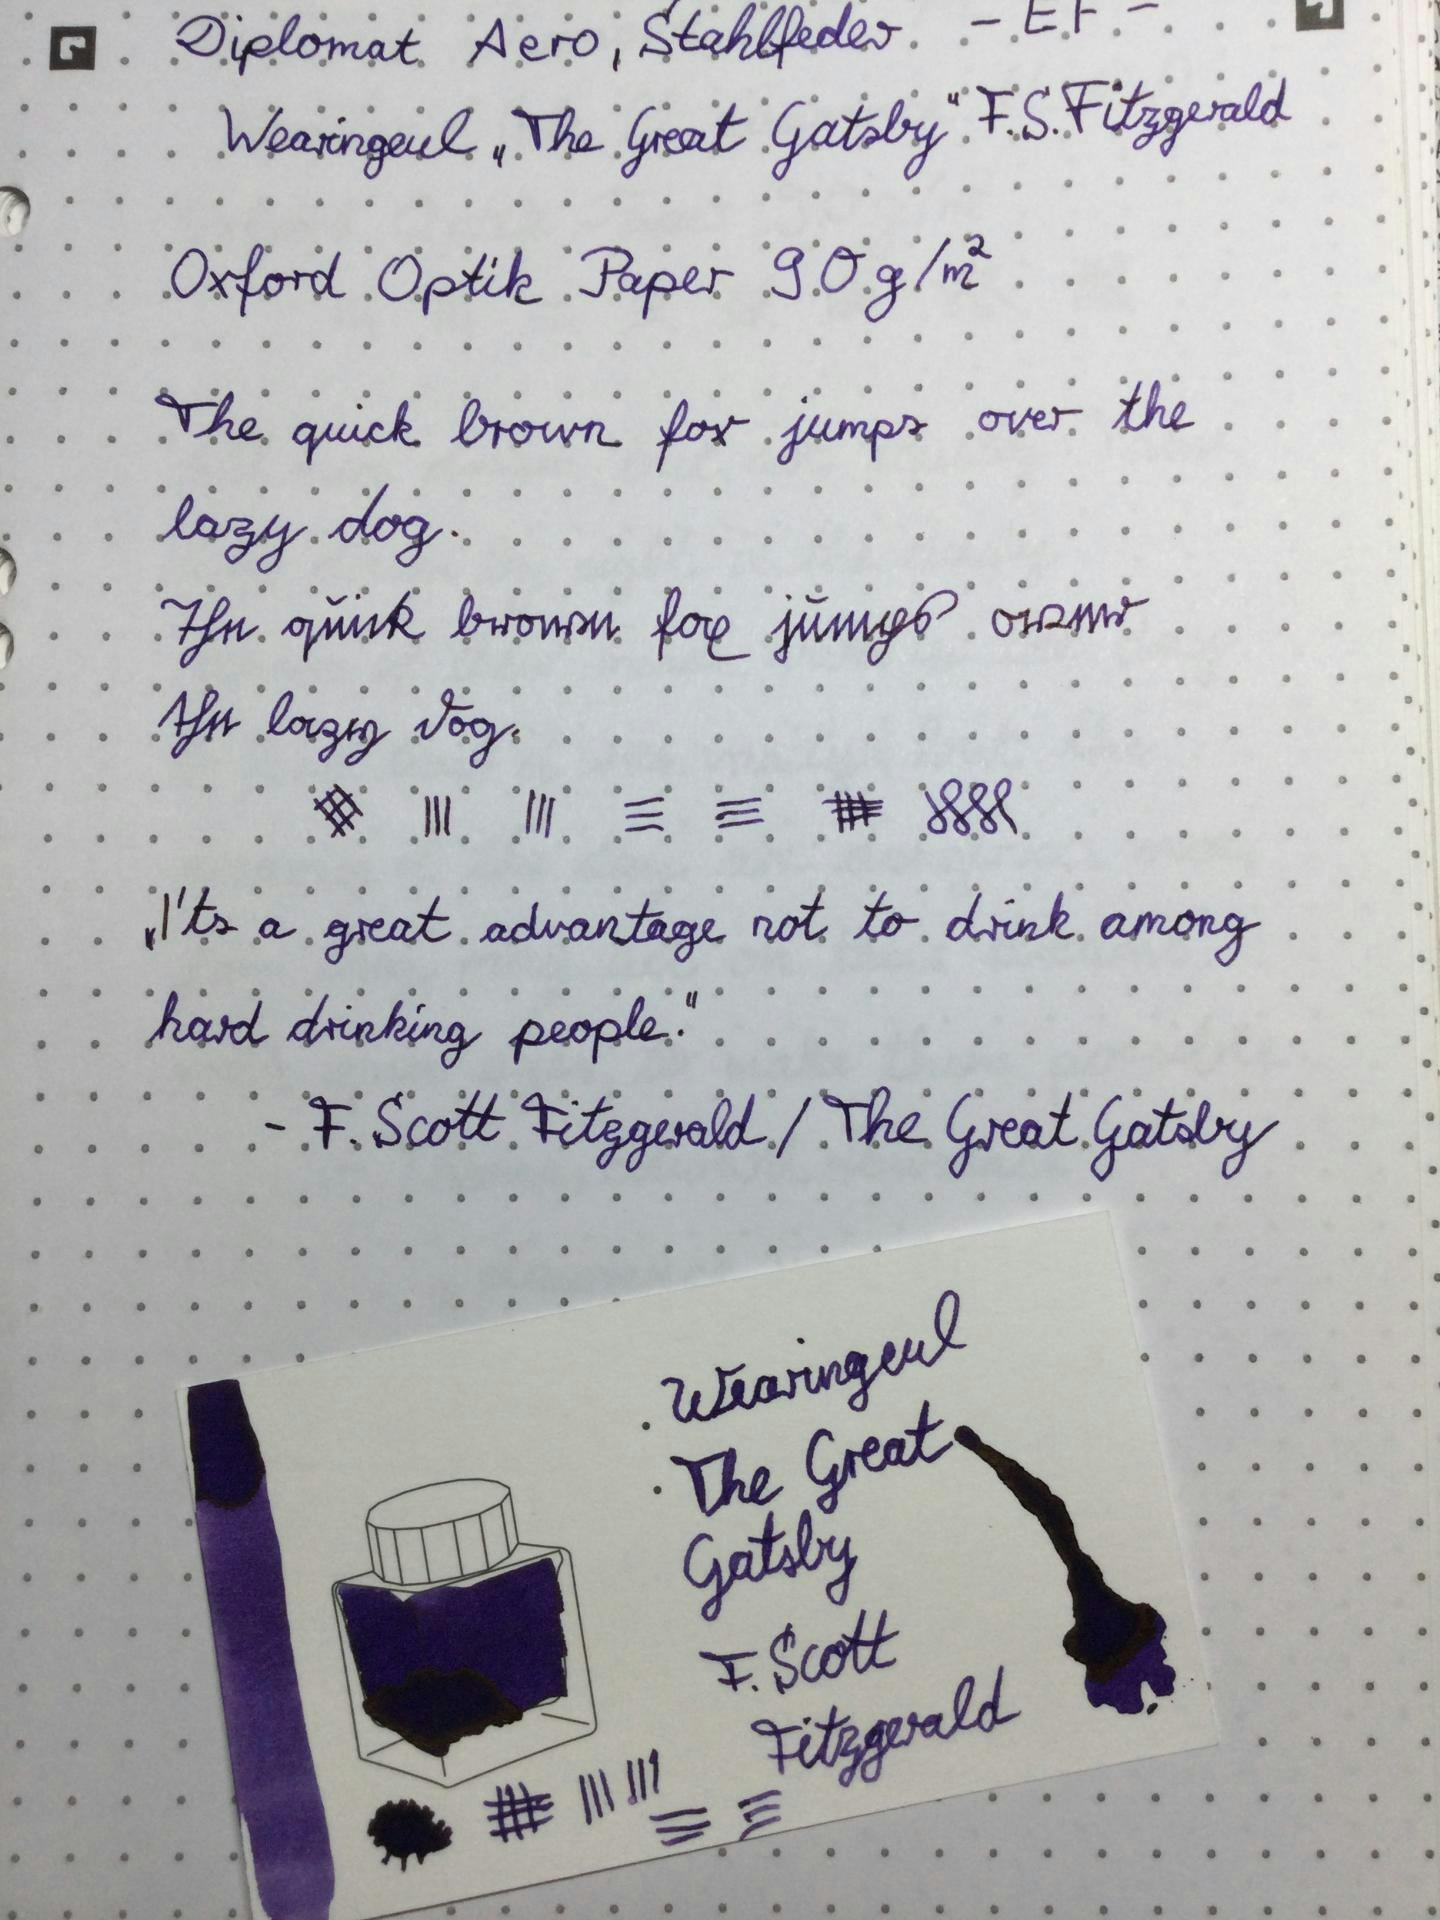 Diplomat Aero, Stahlfeder - EF -
Wearingeul „The Great Gatsby" F.S.Fitzgerald
Oxford Optik Paper 90 g/m²
The quick brown fox jumps over the
lazy dog.
The quick brown fox jumps over
the lazy dog.
„I'ts a great advantage not to drink among
hard drinking people."
- F. Scott Fitzgerald / The Great Gatsby
Wearingeul
The Great
Gatsby
F. Scott
Fitzgerald